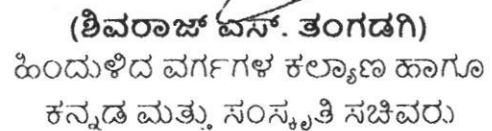 (ಶಿವರಾಜ್ ಎಸ್. ತಂಗಡಗಿ)
ಹಿಂದುಳಿದ ವರ್ಗಗಳ ಕಲ್ಯಾಣ ಹಾಗೂ
ಕನ್ನಡ ಮತ್ತು ಸಂಸ್ಕೃತಿ ಸಚಿವರು